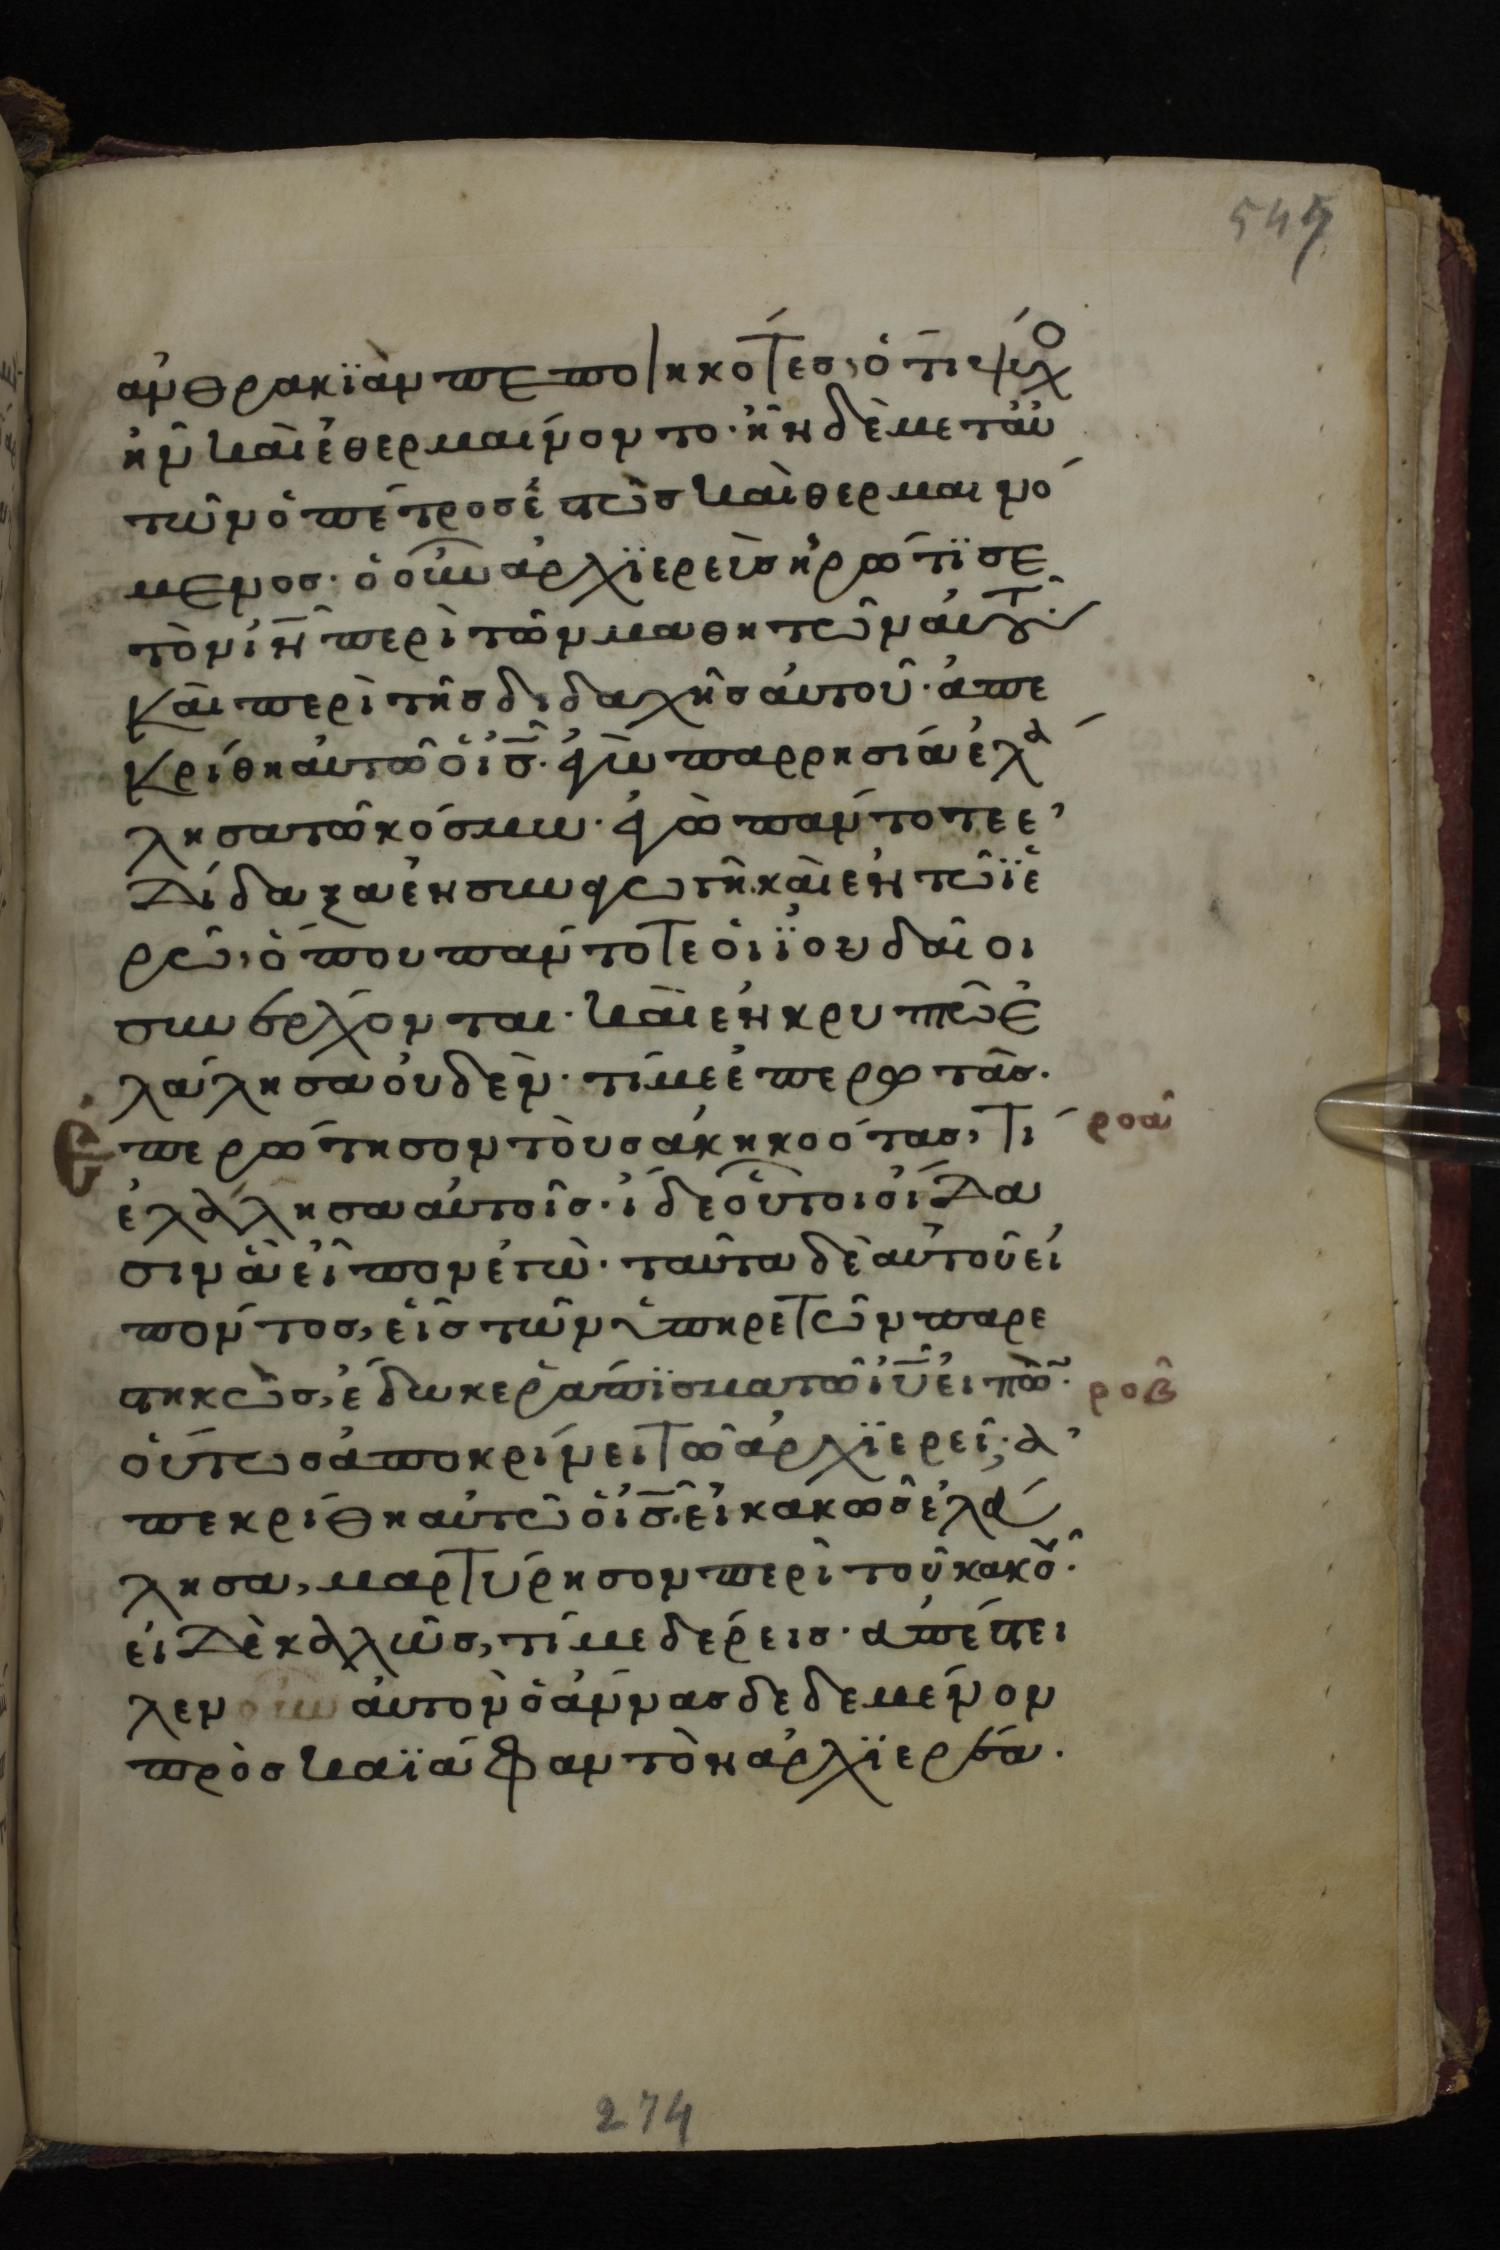 547
ἀνθρακϊὰν πεποιηκότες, ὅτι ψύχο
ἦν καὶ ἐθερμαίνοντο· ἦν δὲ μετ' αὐ
τῶν ὁ πέτρος ἑστὼς καὶ θερμαινό
μενος· ὁ οὖν ἀρχϊερεὺς ἠρώτϊσε
τὸν ιν περὶ τῶν μαθητῶν αὐτ·
καὶ περὶ τῆς διδαχῆς αὐτοῦ· ἀπε
κρίθη αὐτῶ ὁ ις· ἐγὼ παρρησία ἐλά
λησα τῶ κόσμω· ἐγὼ πάντοτε ἐ
δίδαξα ἐν συναγωγῆ καὶ ἐν τῶ ϊε
ρῶ, ὅπου πάντοτε οἱ ϊουδαῖοι
συνέρχονται· καὶ ἐν κρυπτῶ ἐ
λάλησα οὐδέν· τί με ἐπερωτᾶς·
Ἐπερώτησον τοὺς ἀκηκοότας, τί ροα
ἐλάλησα αὐτοῖς· ἴδε οὗτοι οἴδα
σιν ἃ εἶπον ἐγὼ· ταῦτα δὲ αὐτοῦ εἰ
πόντος, εἷς τῶν ὑπηρετῶν παρε
στηκὼς, ἔδωκε ῥάπϊσμα τῶ ιυ εἰπὼ· ροβ
οὕτως ἀποκρίνει τῶ ἀρχϊερεῖ; ἀ
πεκρίθη αὐτῶ ὁ ις· εἰ κακῶς ἐλά
λησα, μαρτύρησον περὶ τοῦ κακοῦ·
εἰ δὲ καλλῶς, τί με δέρεις· ἀπέστει
λεν οὖν αὐτὸν ὁ ἄννας δεδεμένον
πρὸς καϊάφαν τὸν ἀρχϊερέα·
274